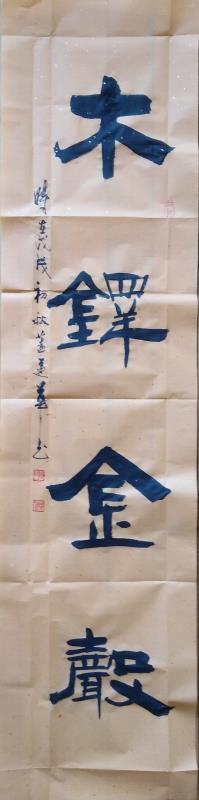 木鐸金聲
時在戊戌初秋